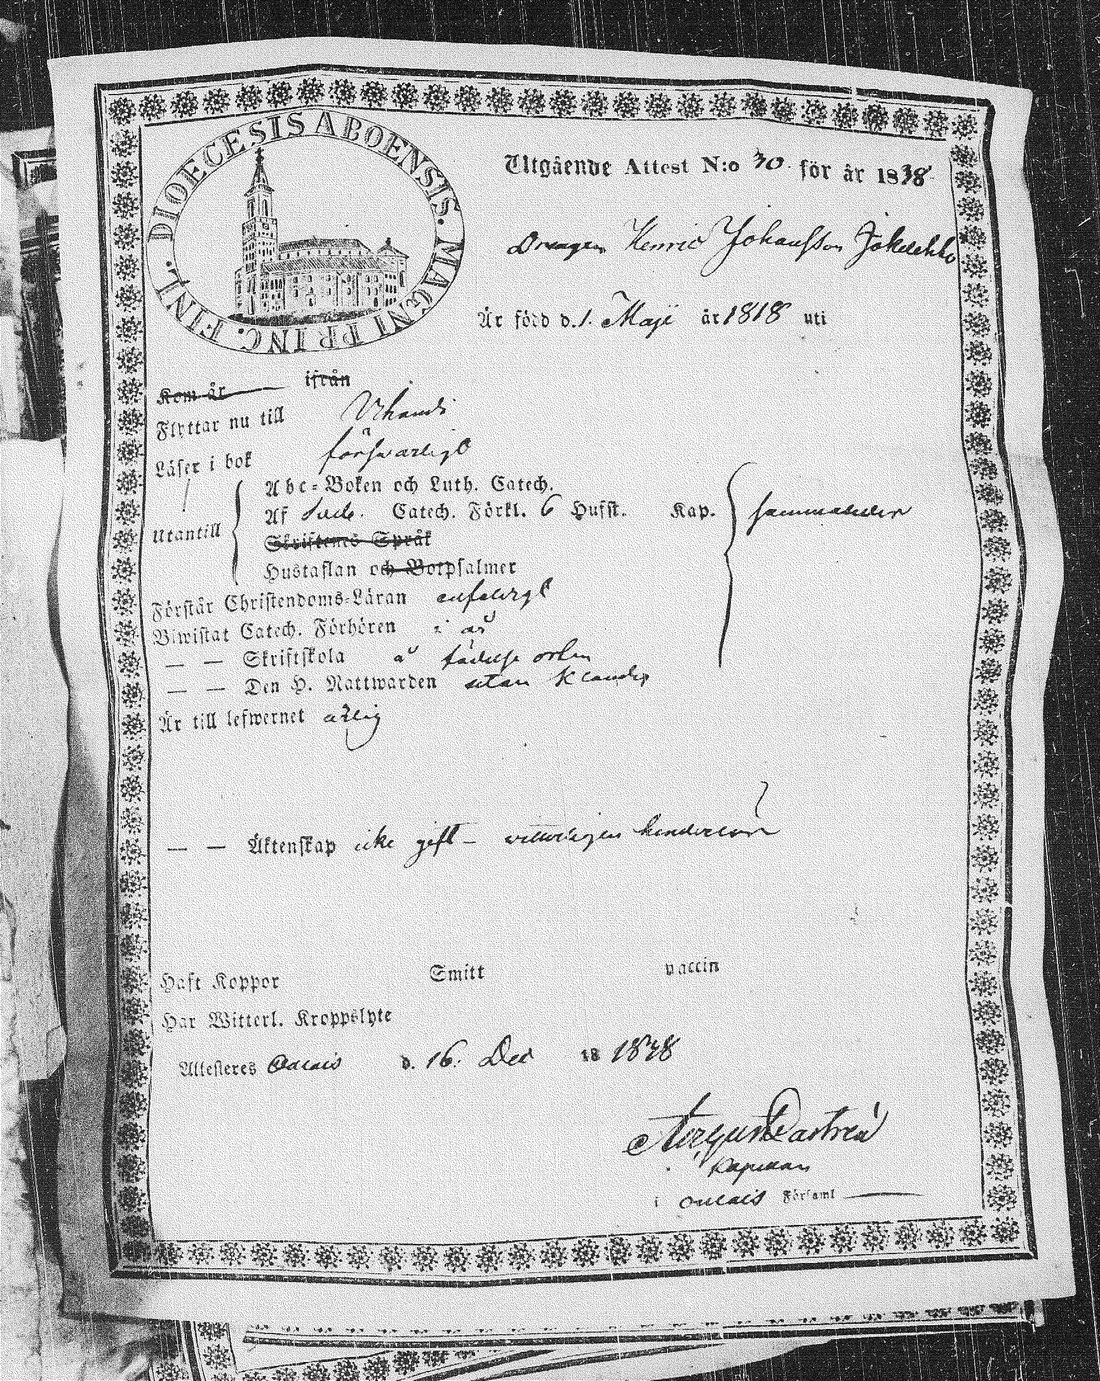 DIOECESIS ABOENSIS. MAGNI PRINC. FINL.
Utgående Attest N:o 30. för år 1838.
Drengen Henric Johansson
Är född d. 1. Maji år 1818 uti
Kom år ifrån
Flyttar nu till
Läser i bok försvarligt
Utantill
Abc-Boken och Luth. Catech.
Af Catech. Förkl. 6 Hufst. Kap.
Skriftenes Språk
Hustaflan och Botpsalmer
Förstår Christendoms-Läran
Biwistat Catech. Förhören i år
— — Skriftskola å födelse orten
— — Den H. Nattwarden utan
Är till lefwernet ärlig
— — Äktenskap icke gift —
Haft Koppor Smitt vaccin
Har Witterl. Kroppslyte
Attesteres d. 16. Dec 18 1838
August Castrén
Kapellan
i Församl